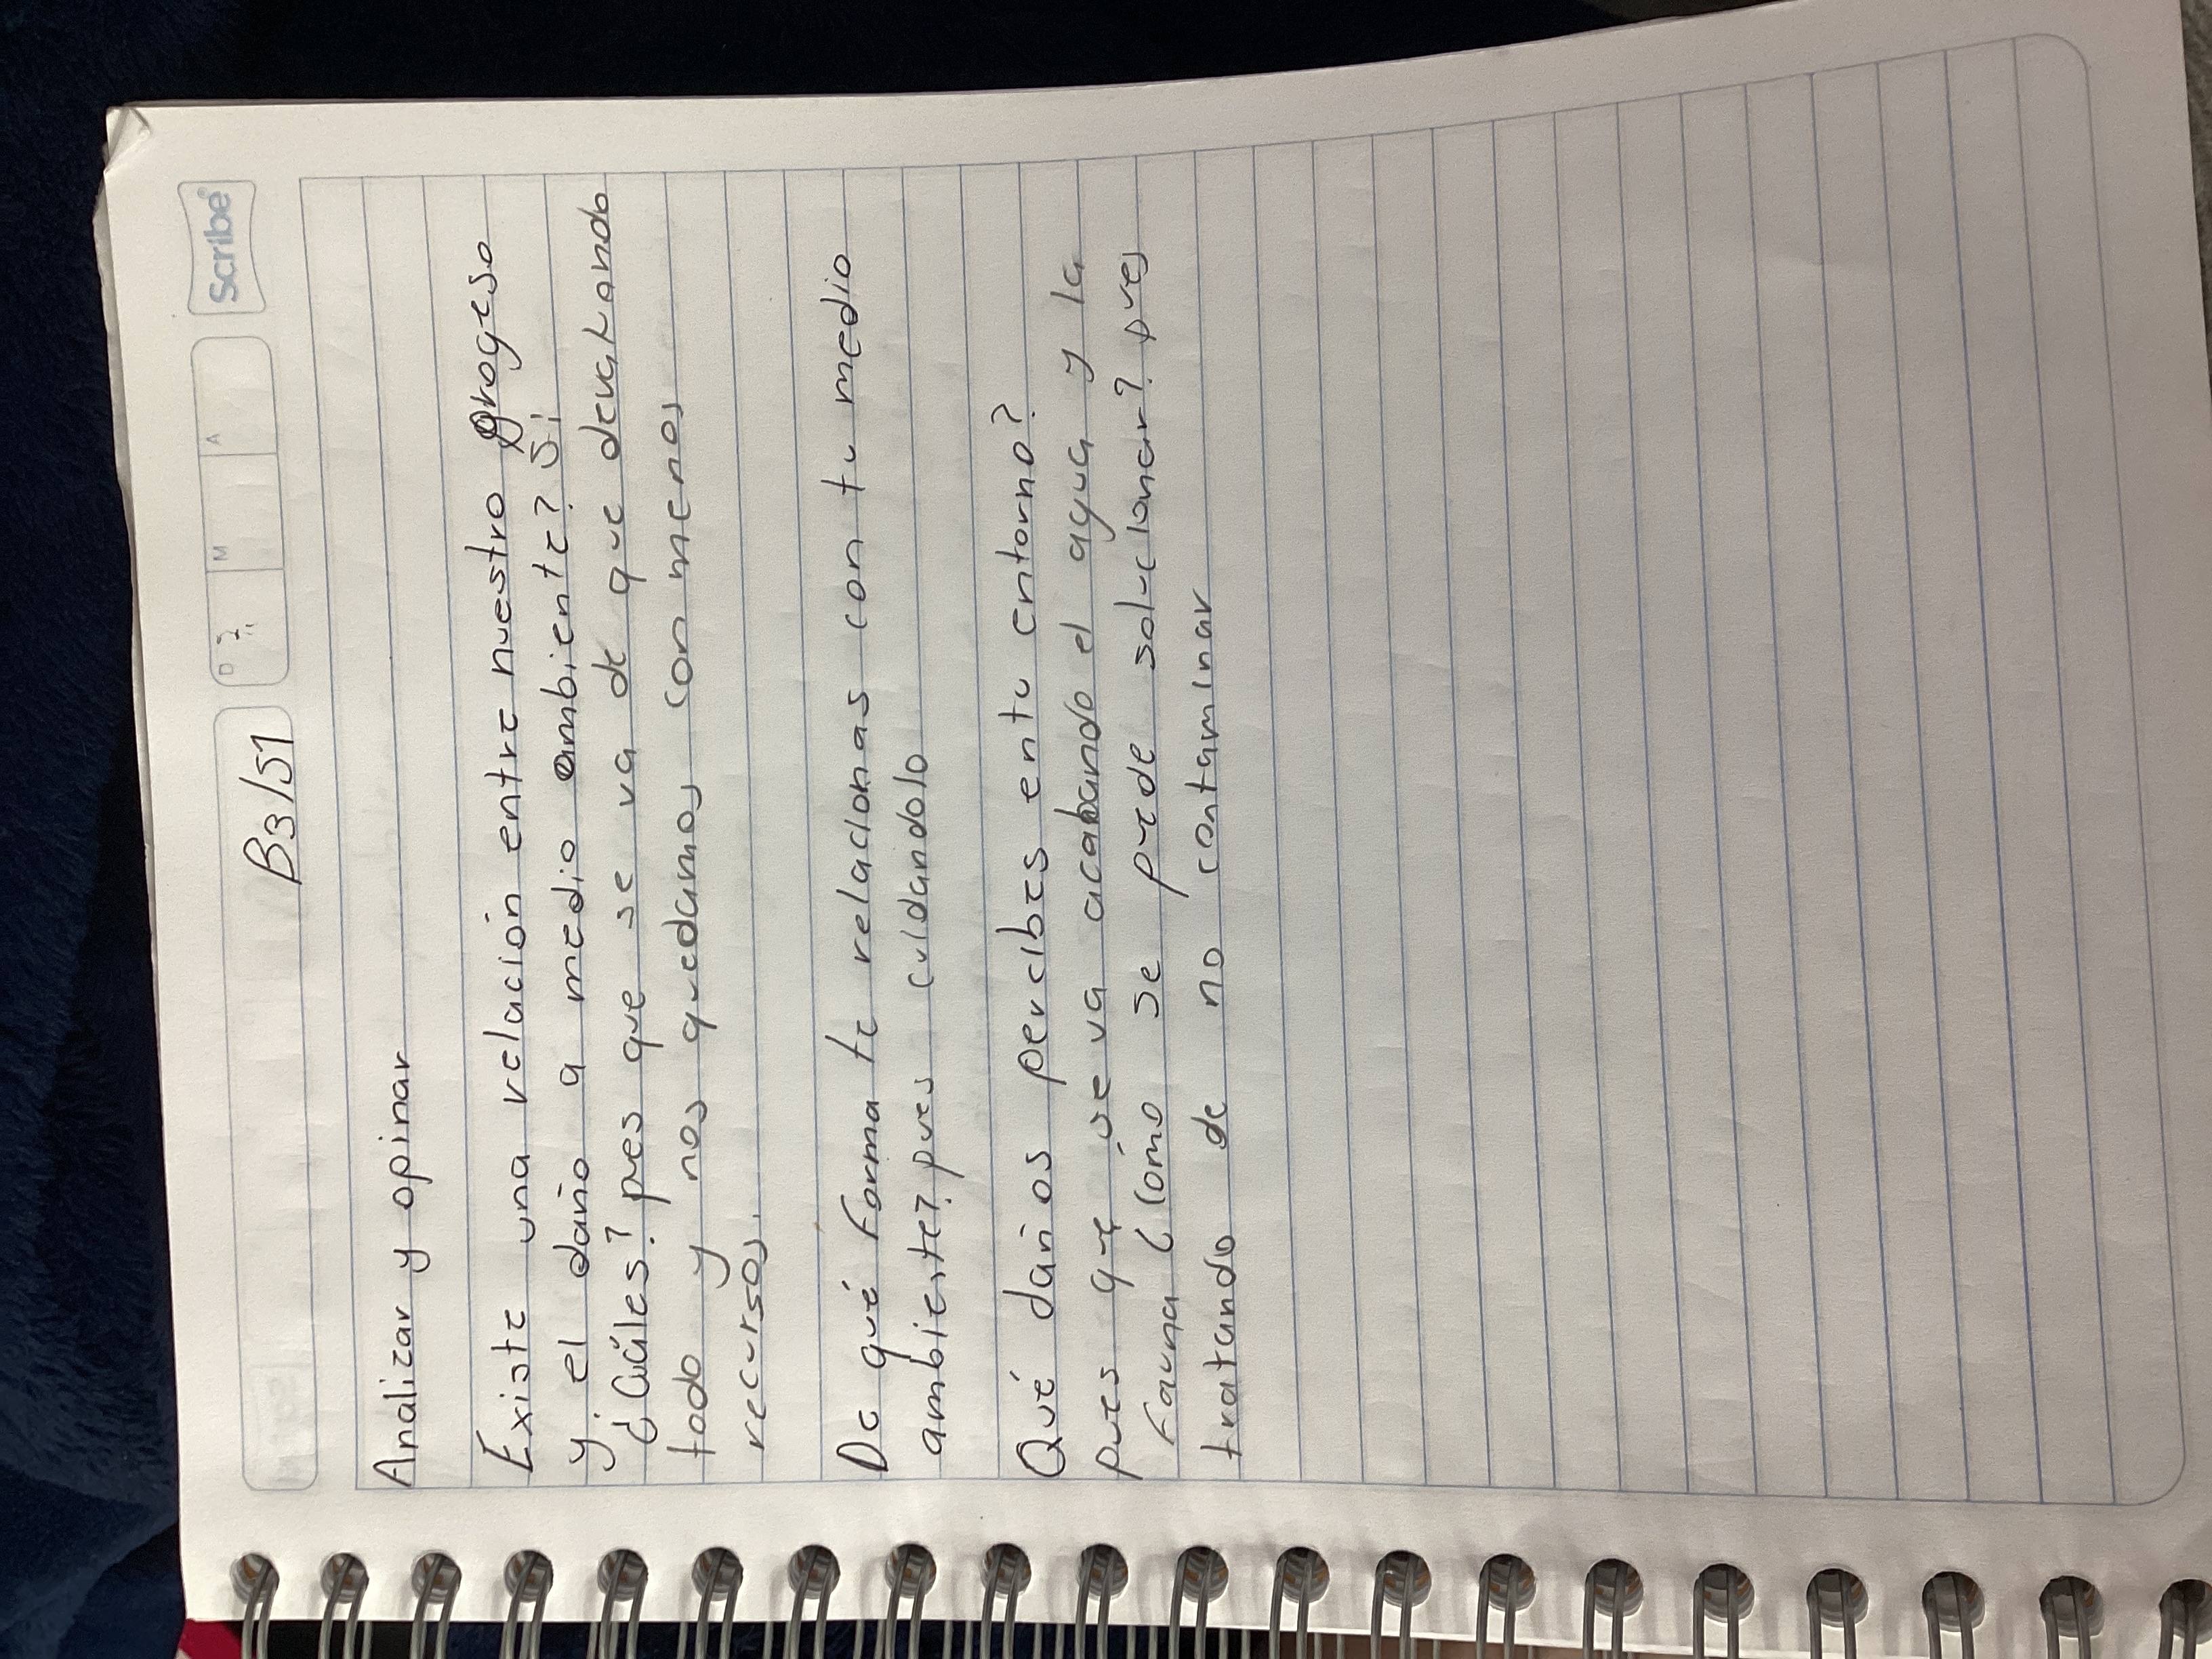 Scribe
D M A
B3/S1
Analizar y opinar
Existe una relación entre nuestro progeso
y el daño a medio ambiente? Si
¿Cuáles? pes que se va de que devahando
todo y nos quedamos con menos
recursos.
De qué Forma te relacionas con tu medio
ambiente? pues cuidandolo
Qué daños percibes entu entorno?
pues que se va acabando el agua y la
Fauna ¿Cómo se puede solucionar? pues
tratando de no contaminar